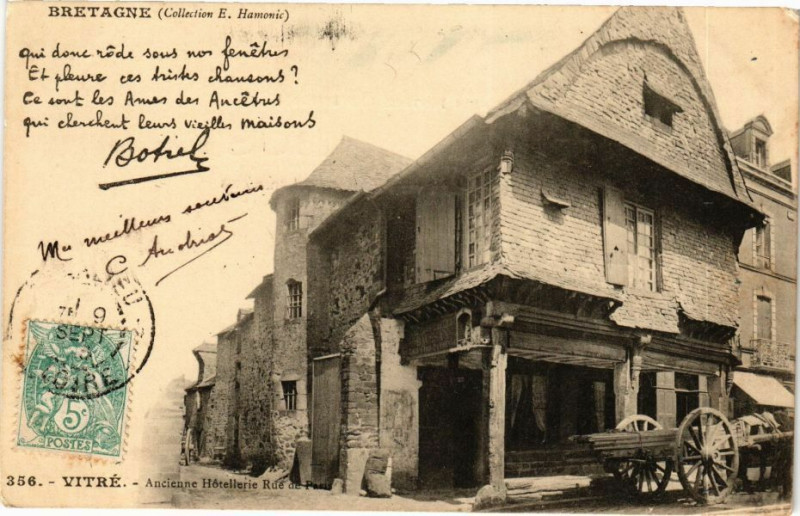 BRETAGNE (Collection E. Hamonic)
Qui donc rôde sous nos fenêtres
Et pleure ces tristes chansons ?
Ce sont les Ames des Ancêtres
qui cherchent leurs vieilles maisons
Botrel
meilleurs souvenirs
9
SEPT
5c
POSTES
356. - VITRÉ. - Ancienne Hôtellerie Rue de Paris